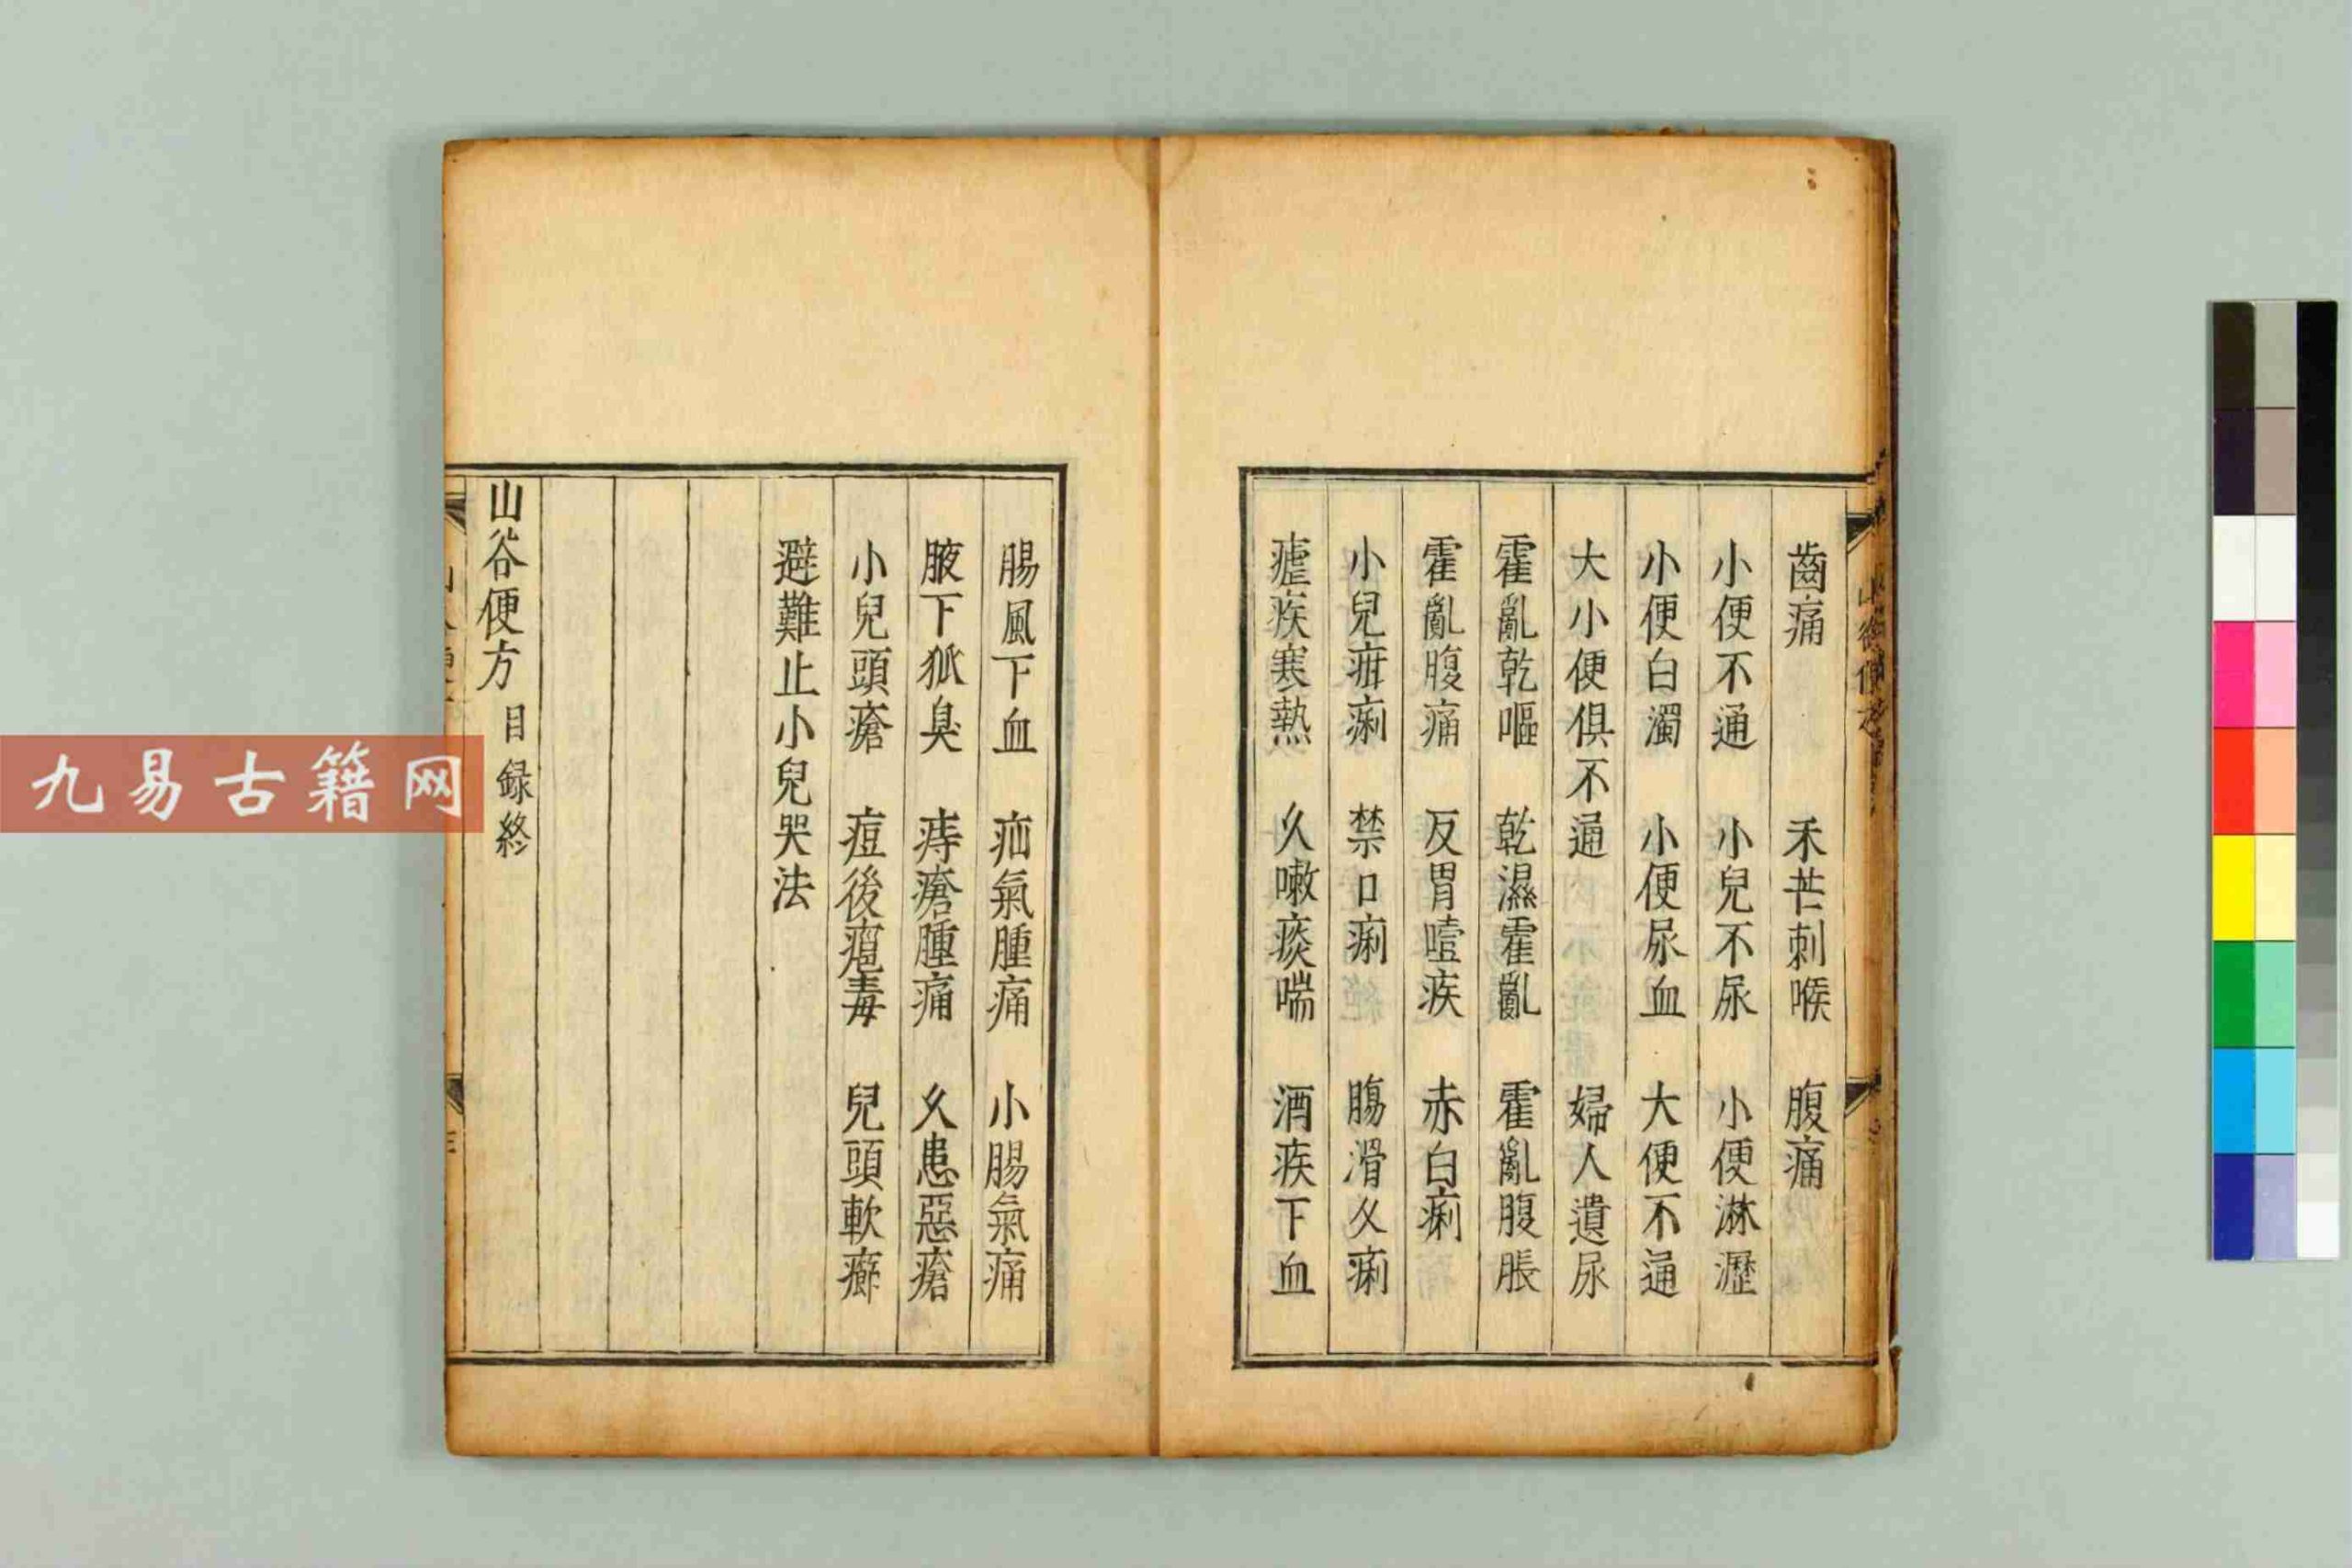 齒痛　禾芒刺喉　腹痛
小便不通　小兒不尿　小便淋瀝
小便白濁　小便尿血　大便不通
大小便俱不通　婦人遺尿
霍亂乾嘔　乾濕霍亂　霍亂腹脹
霍亂腹痛　反胃噎疾　赤白痢
小兒疳痢　禁口痢　腸滑久痢
瘧疾寒熱　久嗽痰喘　酒疾下血
腸風下血　疝氣腫痛　小腸氣痛
腋下狐臭　痔瘡腫痛　久患惡瘡
小兒頭瘡　痘後疱毒　兒頭軟癤
避難止小兒哭法
山谷便方　目録終
九易古籍网